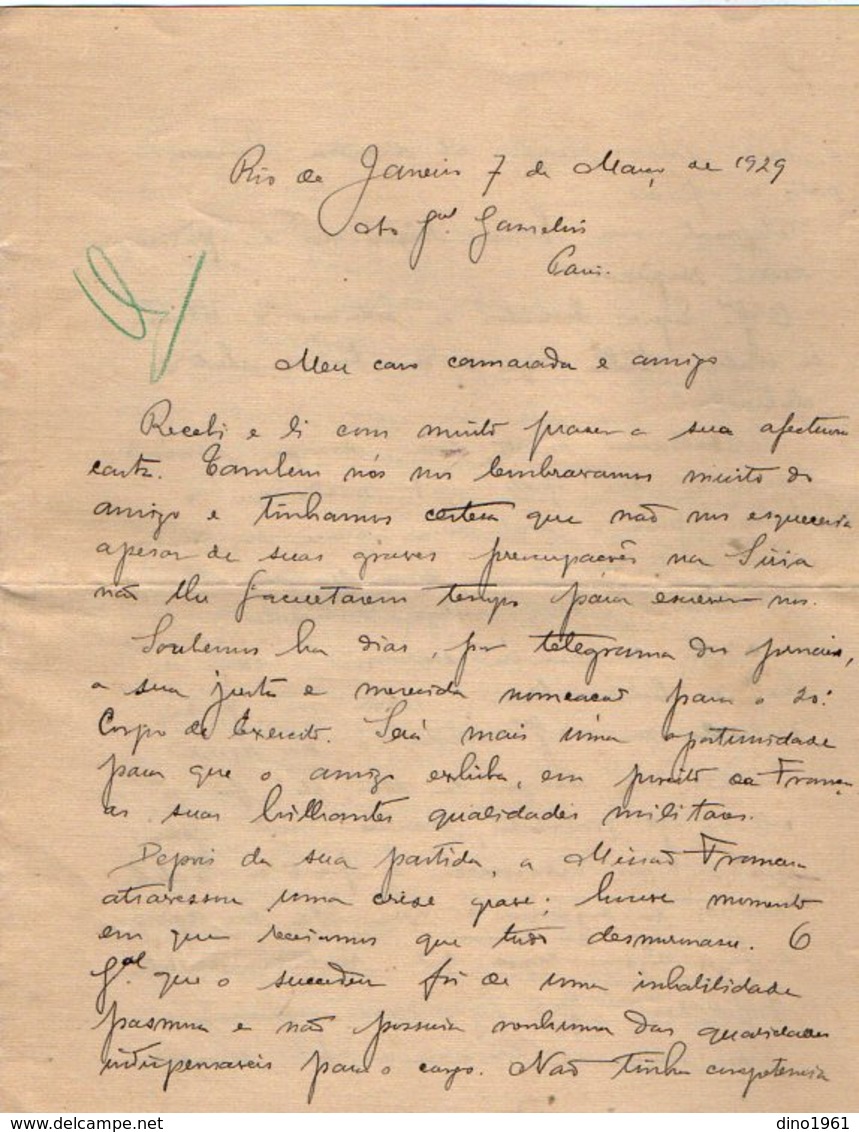 Rio de Janeiro 7 de Março de 1929
Ao Gal. Gamelin
Paris.
Meu caro camarada e amigo
Recebi e li com muito prazer a sua afectuosa
carta. Tambem nós nos lembravamos muito do
amigo e tinhamos certeza que não nos esqueceria
apesar de suas graves preocupações na Siria
não lhe facultarem tempo para escrever-nos.
Soubemos ha dias, por telegrama dos jornais,
a sua justa e merecida nomeação para o 20º
Corpo de Exercito. Será mais uma oportunidade
para que o amigo exhiba, em proveito da França
as suas brilhantes qualidades militares.
Depois da sua partida, a Missão Francesa
atravessou uma crise grave; houve momento
em que receiamos que tudo desmoronasse. O
Gal. que o sucedeu foi de uma inhabilidade
pasmosa e não possuia nenhuma das qualidades
indispensaveis para o cargo. Não tinha competencia
delcampe.net
dino1961